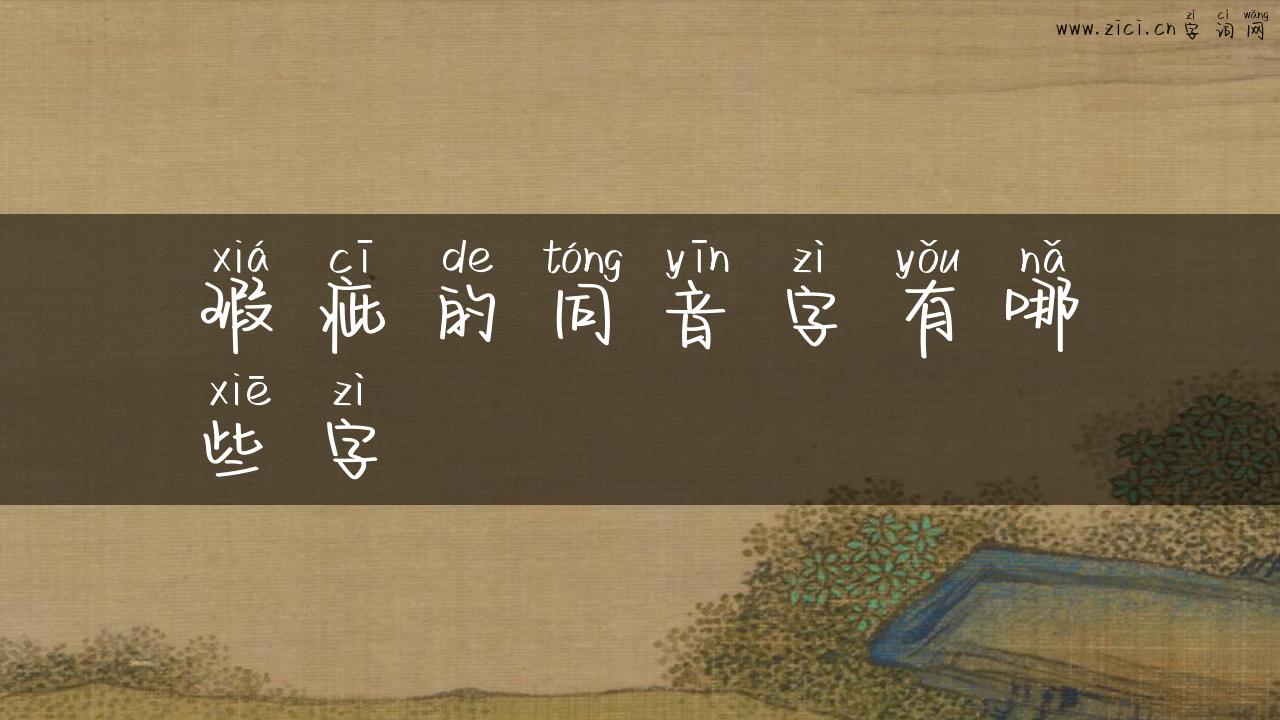 zì cí wǎng
www.zici.cn 字词网
xiá cī de tóng yīn zì yǒu nǎ
瑕疵的同音字有哪
xiē zì
些字